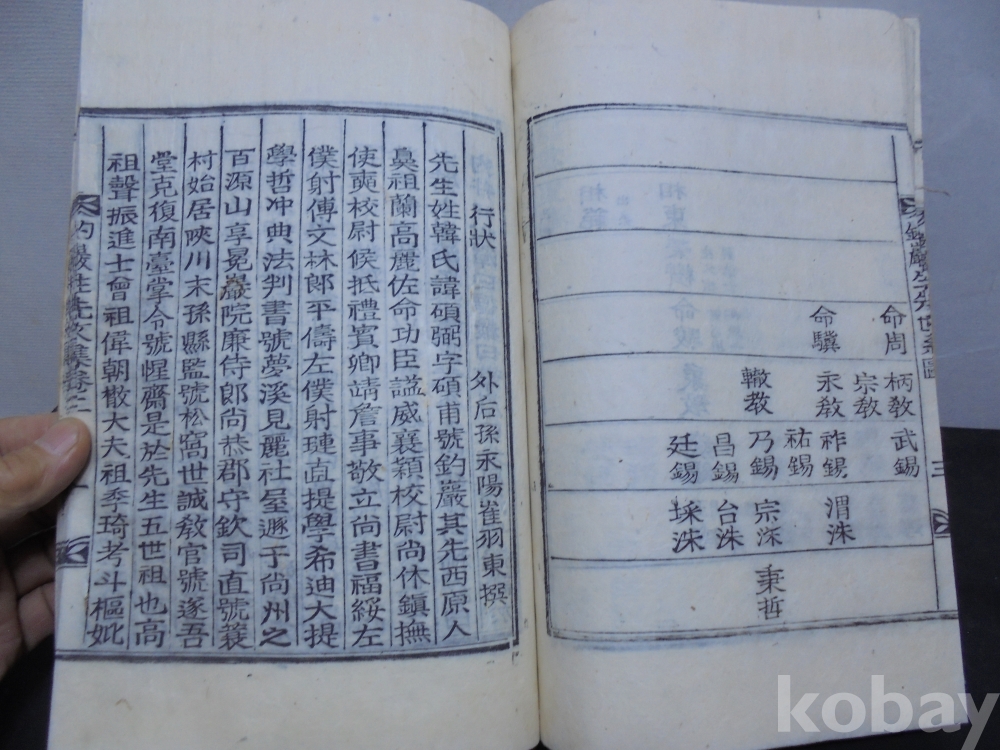 命周 命驥
柄敎 宗敎 永敎 轍敎
武錫 祚錫 祐錫 乃錫 昌錫 廷錫
渭洙 宗洙 台洙 埰洙
秉哲
三
行狀 外后孫永陽崔羽東撰
先生姓韓氏諱碩弼字碩甫號釣巖其先西原人
奠祖蘭高麗佐命功臣諡威襄穎校尉尚休鎭撫
使奭校尉候抵禮賓卿靖詹事敬立尚書福綏左
僕射傅文林郎平儔左僕射璉直提學希迪大提
學哲冲典法判書號夢溪見麗社屋遯于尚州之
百源山享冕巖院廉侍郎尚恭郡守欽司直號蓑
村始居陜川末孫縣監號松窩世誠敎官號遂吾
堂克復南臺掌令號惺齋是於先生五世祖也高
祖聲振進士曾祖偉朝散大夫祖季琦考斗樞妣
kobay